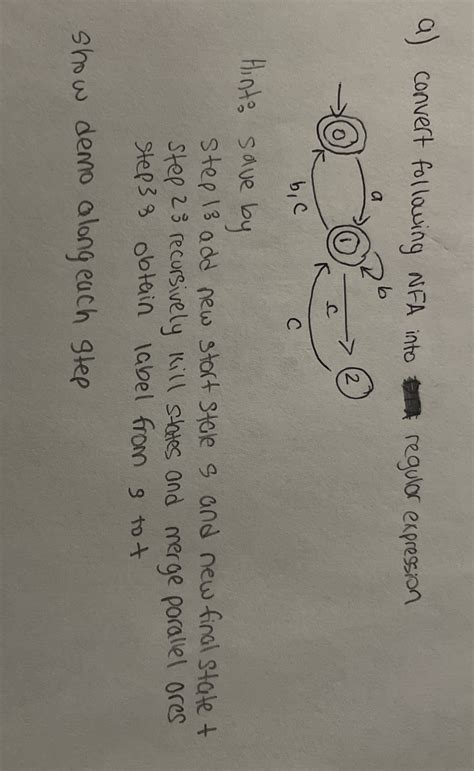 a) convert following NFA into regular expression
a
b
0
1
c
2
b,c
c
Hint: save by
step1: add new start state s and new final state t
step2: recursively kill states and merge parallel arcs
step3: obtain label from s to t
show demo along each step